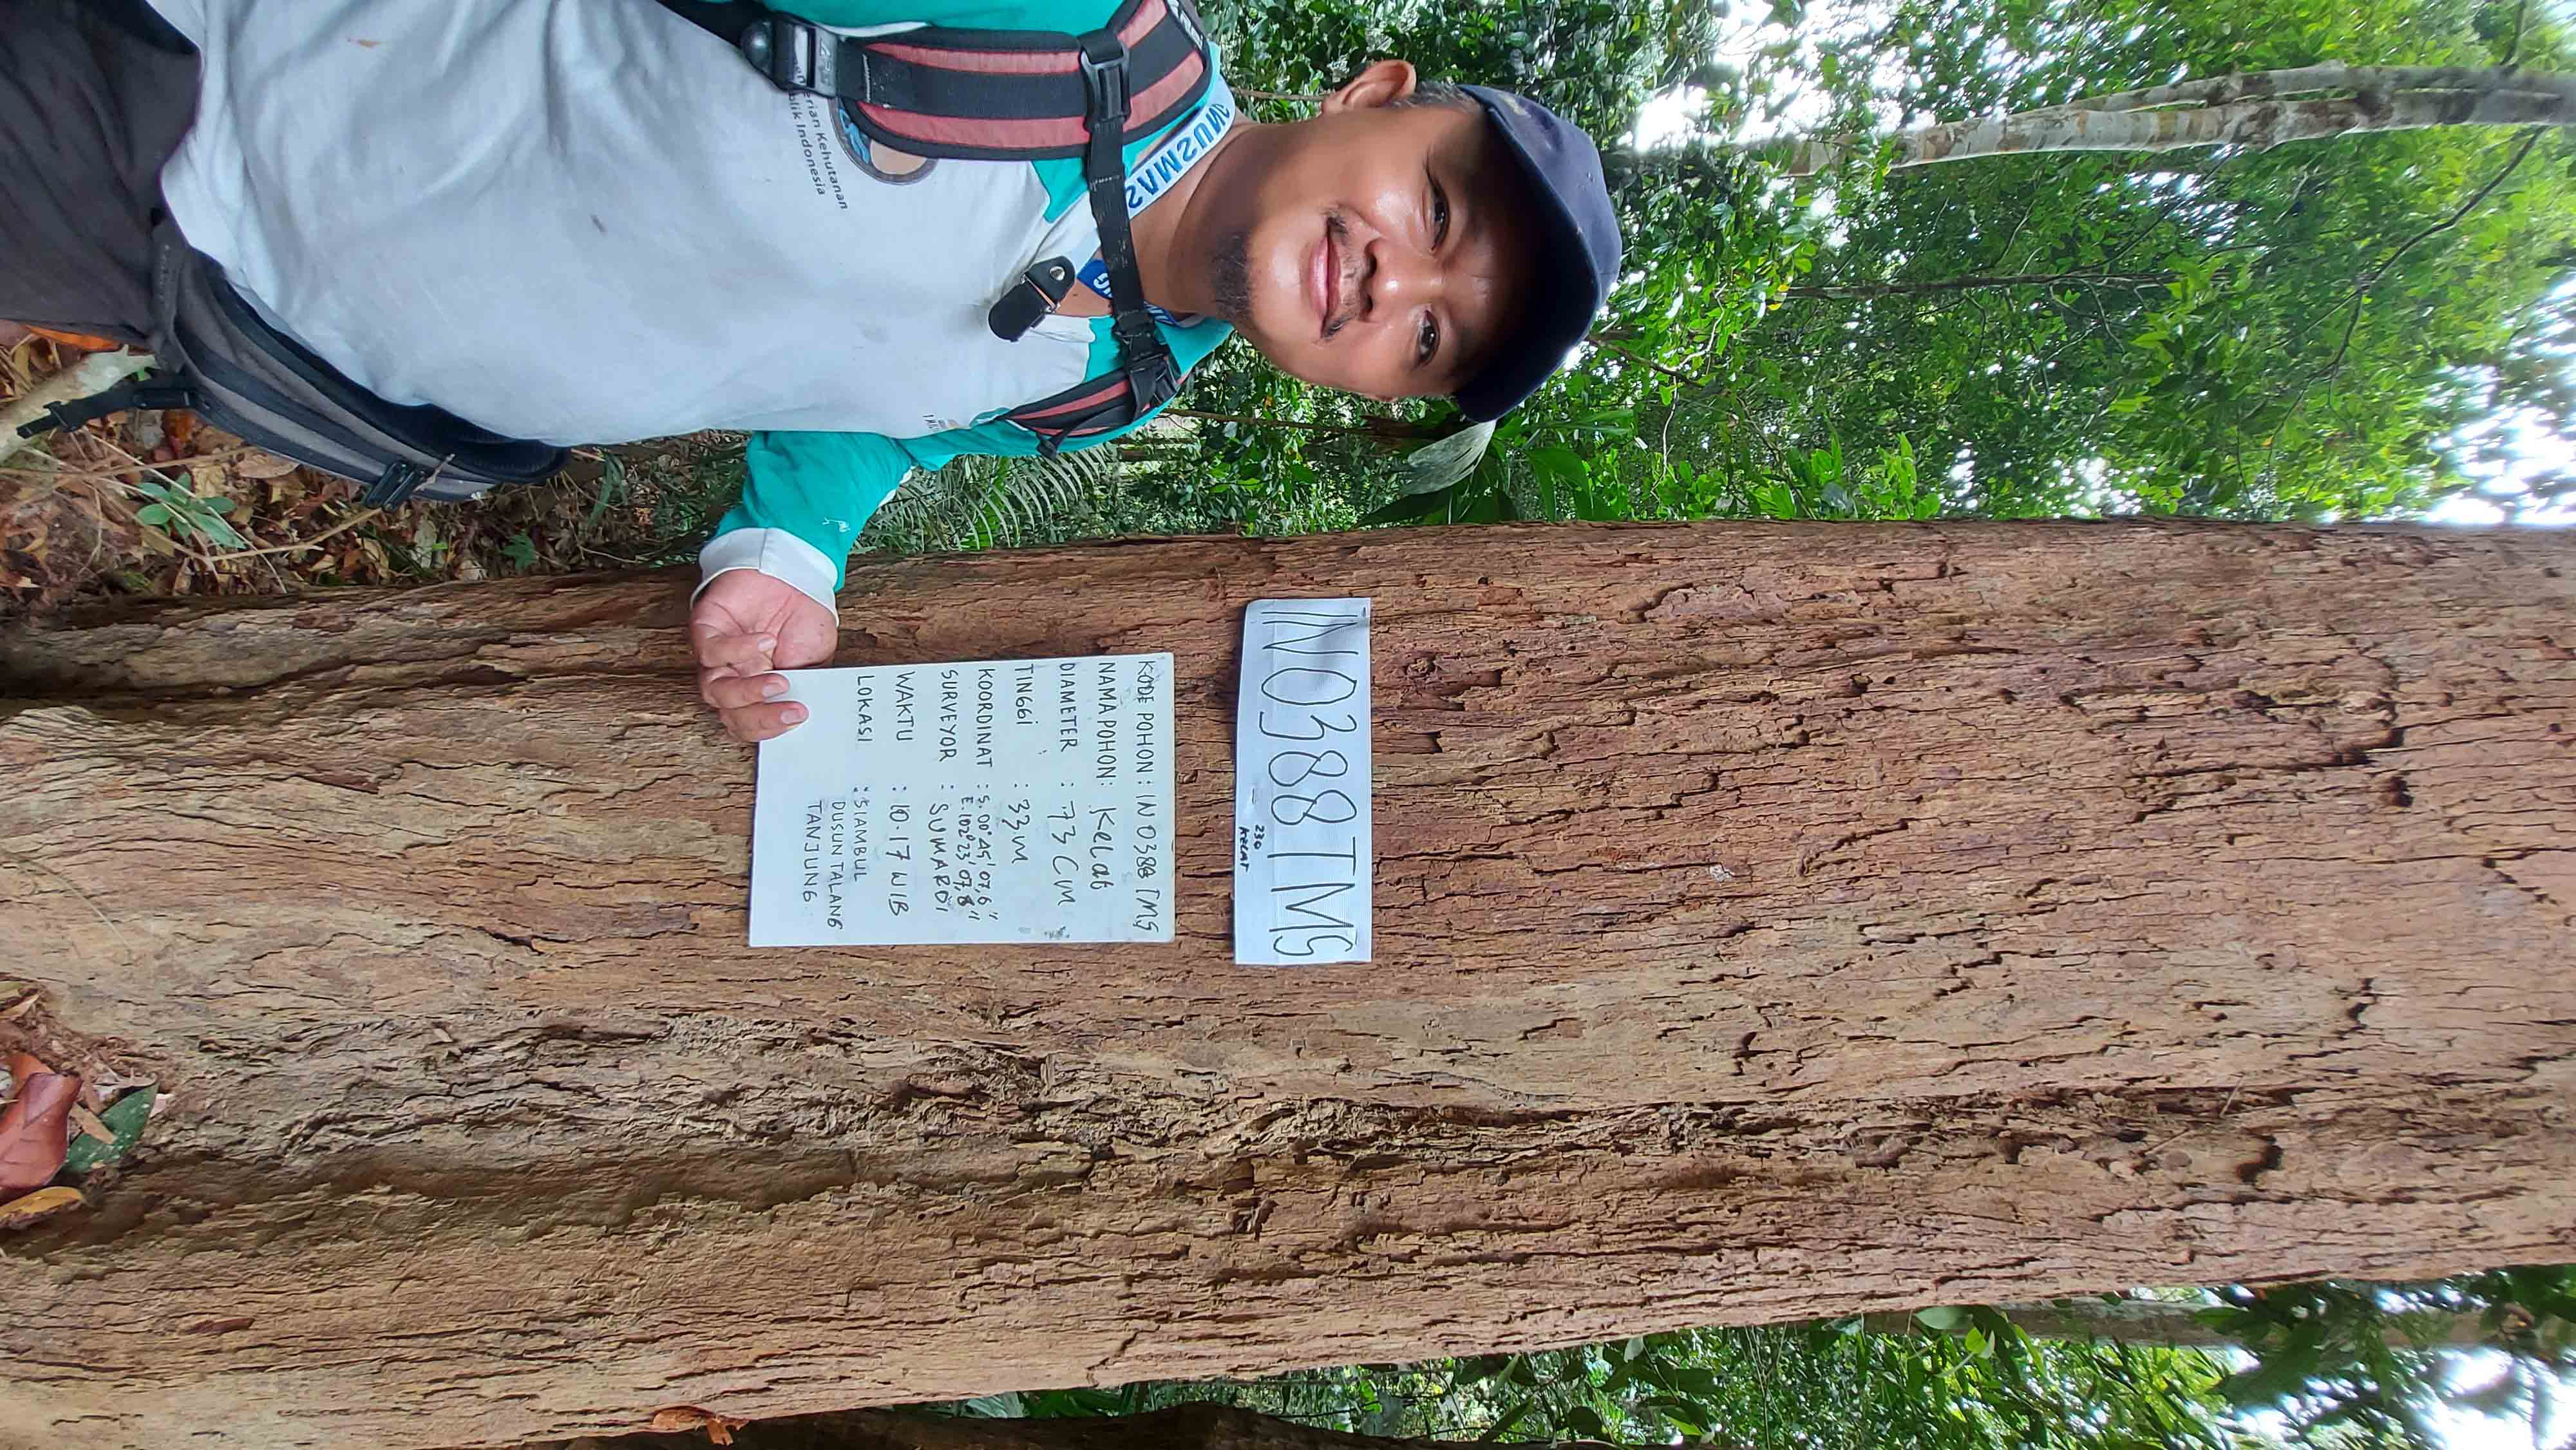 IN0388TMS
230
KELAT
KODE POHON : IN 0388 TMS
NAMA POHON : Kelat
DIAMETER : 73 CM
TINGGI : 33 m
KOORDINAT : S. 00° 45' 07,6"
E. 102° 23' 07,8"
SURVEYOR : SUMARDI
WAKTU : 10.17 WIB
LOKASI : SIAMBUL
DUSUN TALANG
TANJUNG
SAMSUNG
erian Kehutanan
blik Indonesia